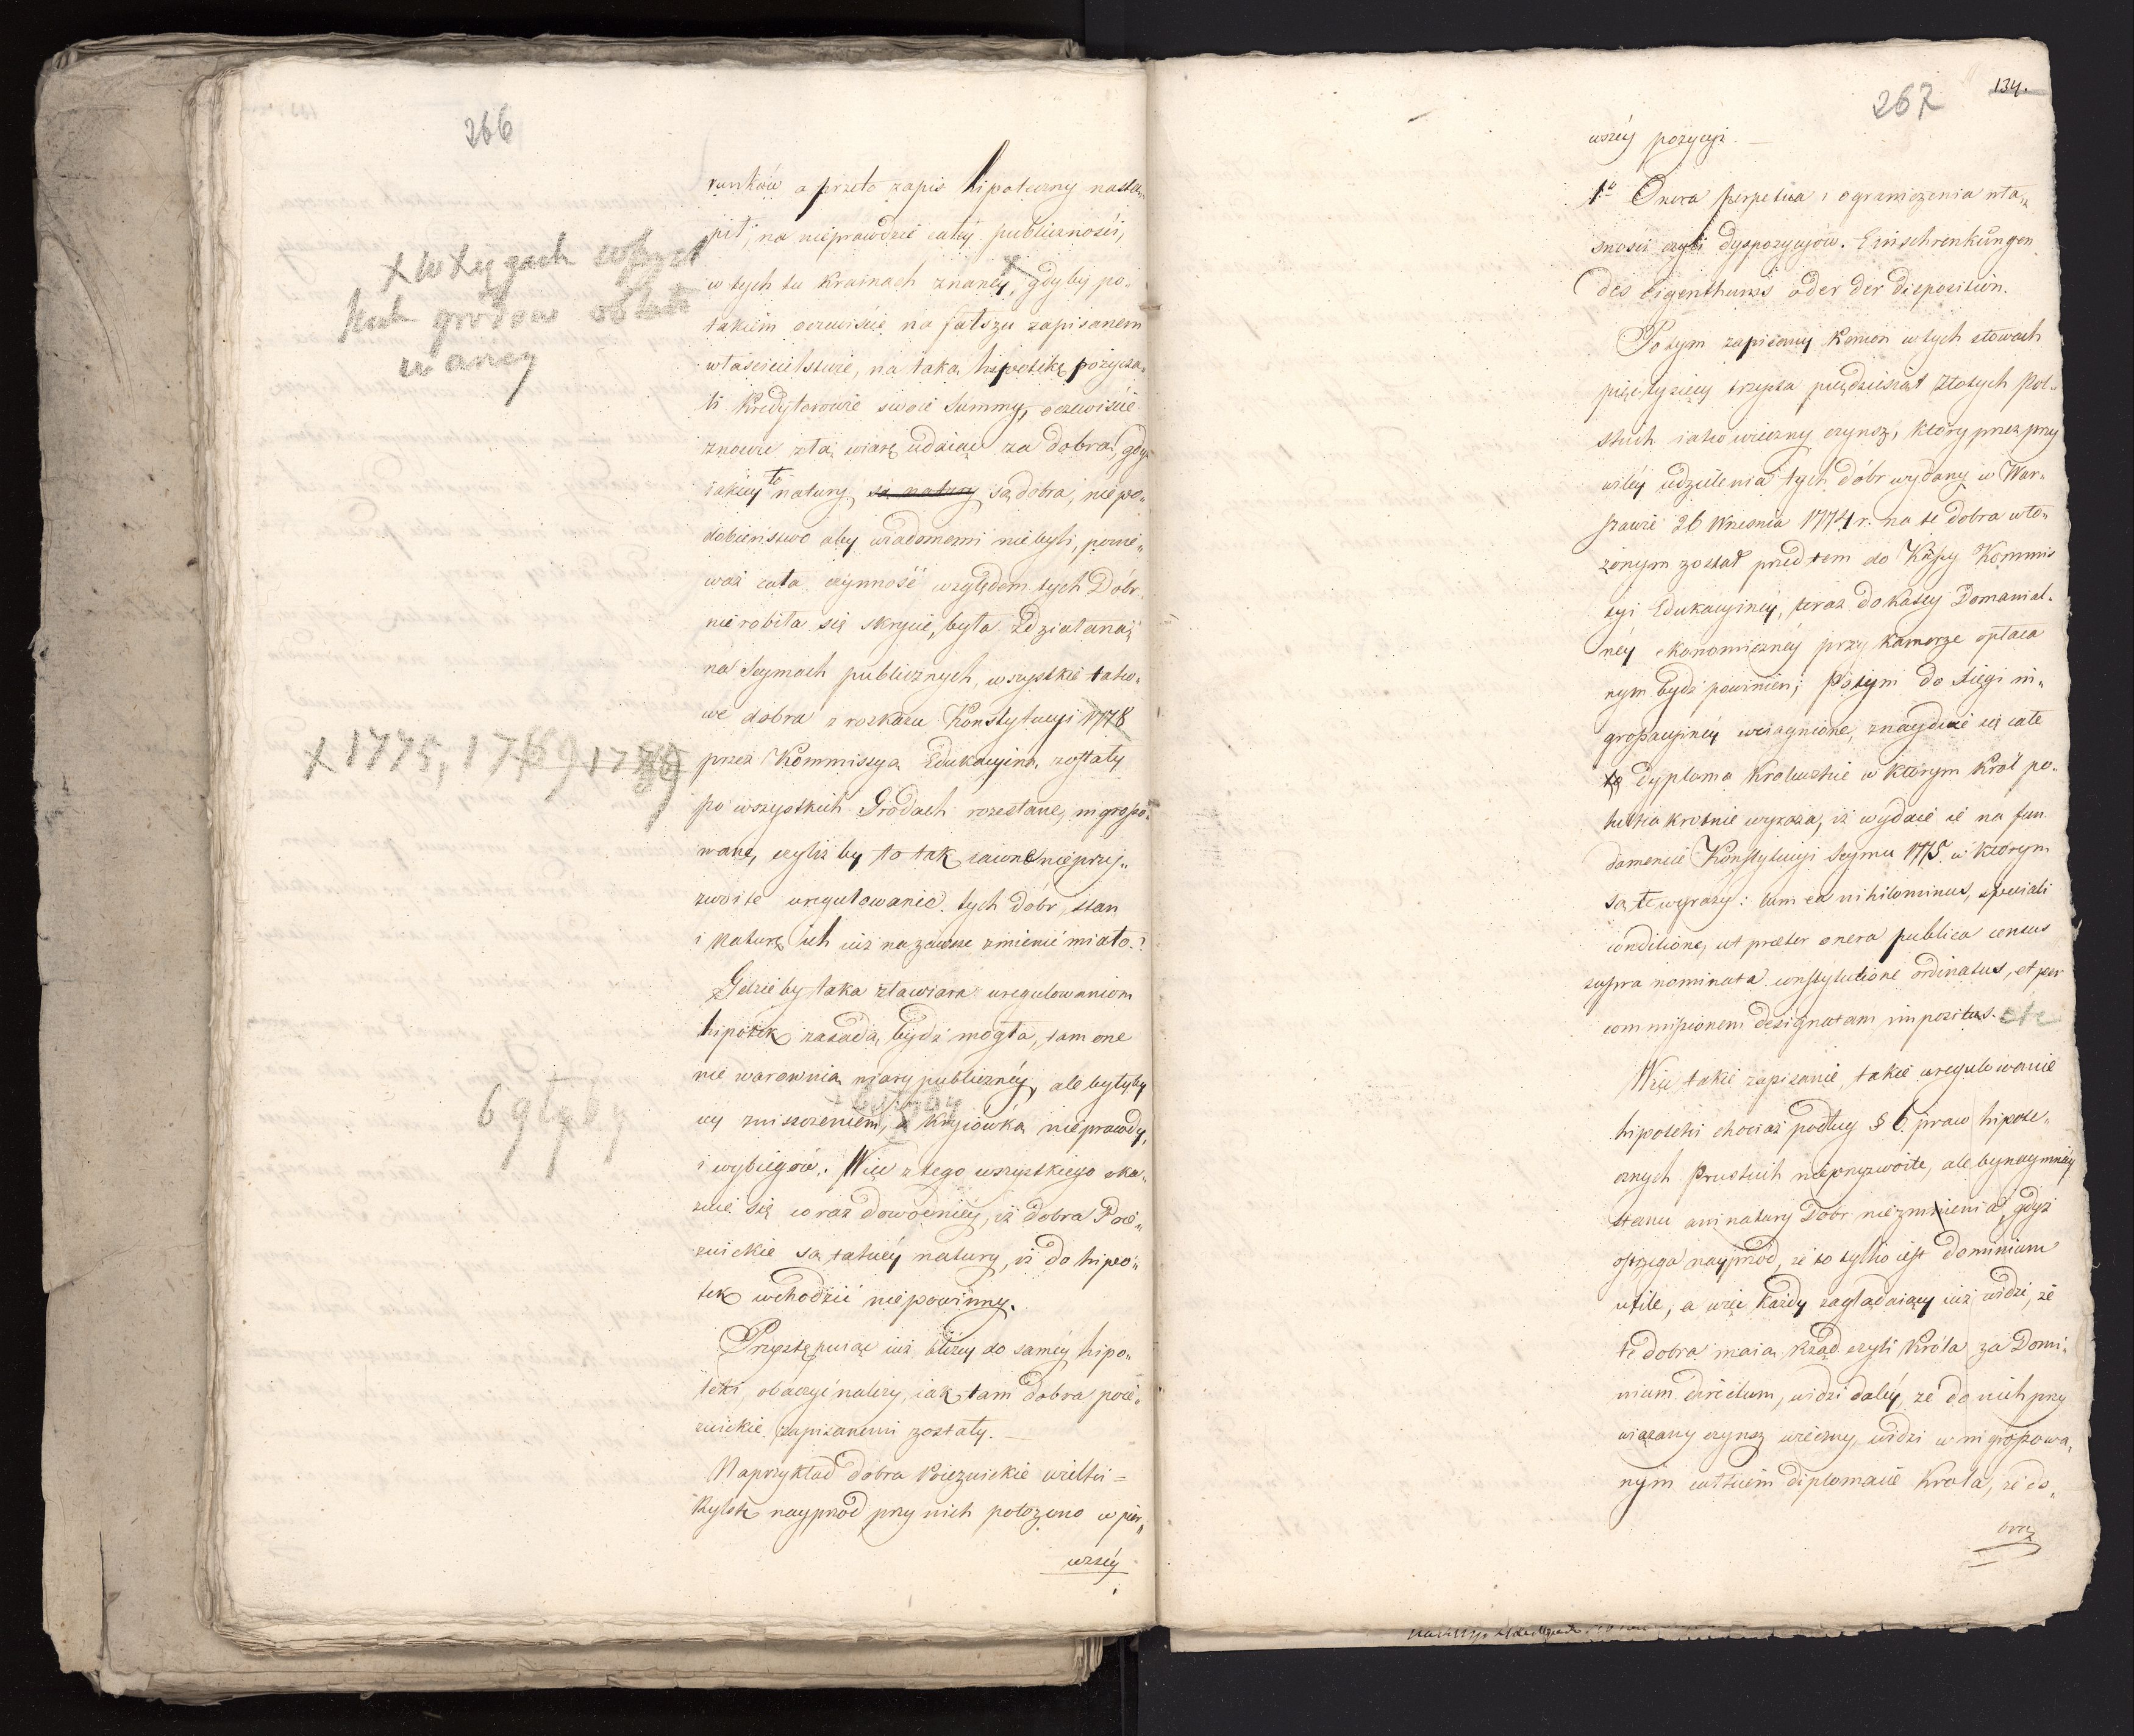 266
runków a przeto zapis hipoteczny nastą„
pił, na nieprawdzie całey publiczności,
w tych tu Krainach znaney, gdyby po„
takim oczewiście na fałszu zapisanem
właścicielstwie, na taką hipotekę pożycza„
li Kredytorowie swoie Summy, oczewiście
znowu złą wiarę udaiąc za dobrą, gdyż
iakiey to natury są natury są dobra, niepo„
dobieństwo aby wiadomemi nie byli, ponie„
waż cała czynność względem tych Dóbr
nie robiła się skrycie, była zdziałaną
na Seymach publicznych, wszystkie tako„
we dobra z rozkazu Konstytucyi 1778
przez Kommissyą Edukacyiną zostały
po wszystkich Grodach rozesłane, ingrosso„
wane, czyliż by to tak iawne nieprzy„
zwoite uregulowanie tych dóbr, stan
i naturę ich iuż na zawsze zmienić miało?
Gdzieby taka zła wiara uregulowaniom
hipotek zasadą bydź mogła, tam one
nie warownią wiary publiczney, ale byłyby
iey zniszczeniem, Kryiówką nieprawdy,
i wybiegów. Więc z tego wszystkiego oka„
zuie się coraz dowodniey, iż dobra Poie„
zuickie są takiey natury, iż do hipo„
tek wchodzić niepowinny.
Przystępuiąc iuż bliżey do samey hipo„
teki, obaczyć należy, iak tam dobra poie„
zuickie zapisanemi zostały.
Naprzykład dobra Poiezuickie wielkii =
Rylsk nayprzód przy nich położono w pier„
wszéy
X w xięgach wszyst
kich grodow oblato
waney
X 1775, 17
byłyby
267
134.
wszéy pozycyi.
1o Onera perpetua i ograniczenia wła„
sności czyli dyspozycyiów. Einschrenkungen
des Eigenthums oder der Disposition.
Potym zapisany Kanon w tych słowach
pięć tysięcy trzysta pięćdziesiąt Złotych Pol„
skich iako wieczny czynsz, który przez przy
wiley udzielenia tych dóbr wydany w War„
szawie 26 Wrzesnia 1774 r. na te dobra wło„
żonym został przedtem do Kassy Kommis
syi Edukacyiney, teraz do Kassy Domanial„
néy ekonomicznéy przy Kamerze opłaca
nym bydź powinien; Potym do xięgi in„
grossacyinéy wciągnione, znayduie się całe
Dyploma Krolewskie w którym Król po„
kilka krotnie wyraża, iż wydaie ie na fun
damencie Konstytucyi Seymu 1775 w którym
są te wyrazy: cum ea nihilominus, speciali
conditione, ut praeter onera publica census
supra nominata constytutione ordinatus, et per
commissionem designatam impositus. etc
Więc takie zapisanie, takie uregulowanie
hipoteki chociaż podług § 6 praw hipote„
cznych Pruskich nieprzyzwoite, ale bynaymniey
stanu ani natury Dobr niezmienia, gdyż
ostrzega nayprzod, że to tylko iest dominium
utile, a więc każdy zaglądaiący iuż widzi, że
te dobra maią Rząd czyli Króla za Domi„
nium directum, widzi daléy, że do nich przy
wiązany czynsz wieczny, widzi w ingrossowa„
nym całkiem diplomacie Króla, że do„
braz